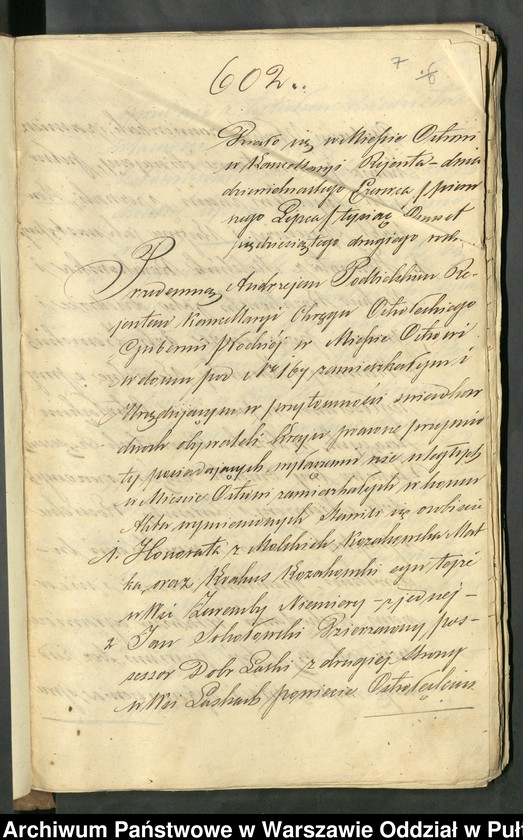 7 6
602..
Działo się w Mieście Ostrowi
w Kancellaryi Rejenta – dnia
dziewiętnastego Czerwca / pierw
szego Lipca / tysiąc Ośmset
pięćdziesiątego drugiego roku
Przedemną Andrzejem Podbielskim Re-
jentem Kancellaryi Okręgu Ostrołęckiego
Gubernii Płockiej w Mieście Ostrowi
w domu pod Nr 167 zamieszkałym, i
Urzędującym w przytomności świadków
dwóch obywateli Kraju prawne przymio
ty posiadających, wyłączeniu nie uległych
w Mieście Ostrowi zamieszkałych, w końcu
Aktu wymienionych stawili się osobiście
1. Honorata z Kozakowska Mat
ka, oraz Kozakowski syn tejże
w Wsi Zaremby – z jednej –
2 Jan Sokołowski Dzierżawny pos-
sessor Dobr Laski z drugiej strony
w Wsi Laskach powiecie Ostrołęckim
Archiwum Państwowe w Warszawie Oddział w Puł